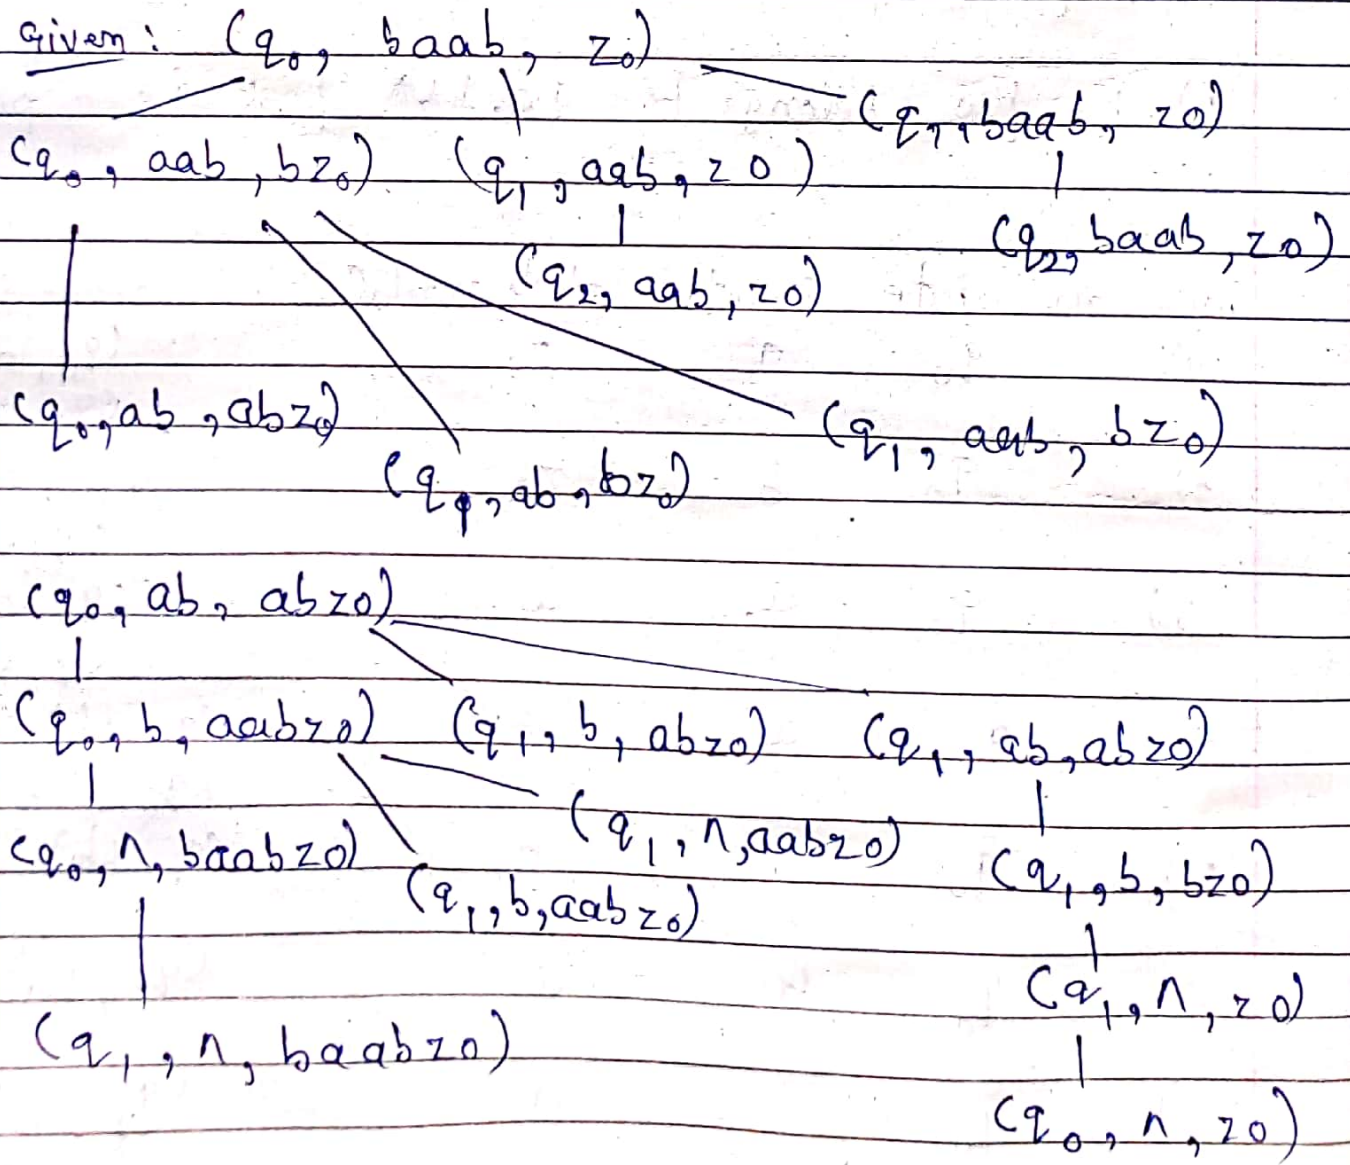 Given: (q0, baab, z0)
(q1, baab, z0)
(q0, aab, bz0) (q1, aab, z0)
(q2, baab, z0)
(q2, aab, z0)
(q0, ab, abz0)
(q1, aab, bz0)
(q1, ab, bz0)
(q0, ab, abz0)
(q0, b, aabz0) (q1, b, abz0) (q1, ab, abz0)
(q1, Λ, aabz0)
(q0, Λ, baabz0) (q1, b, bz0)
(q1, b, aabz0)
(q1, Λ, z0)
(q1, Λ, baabz0)
(q0, Λ, z0)